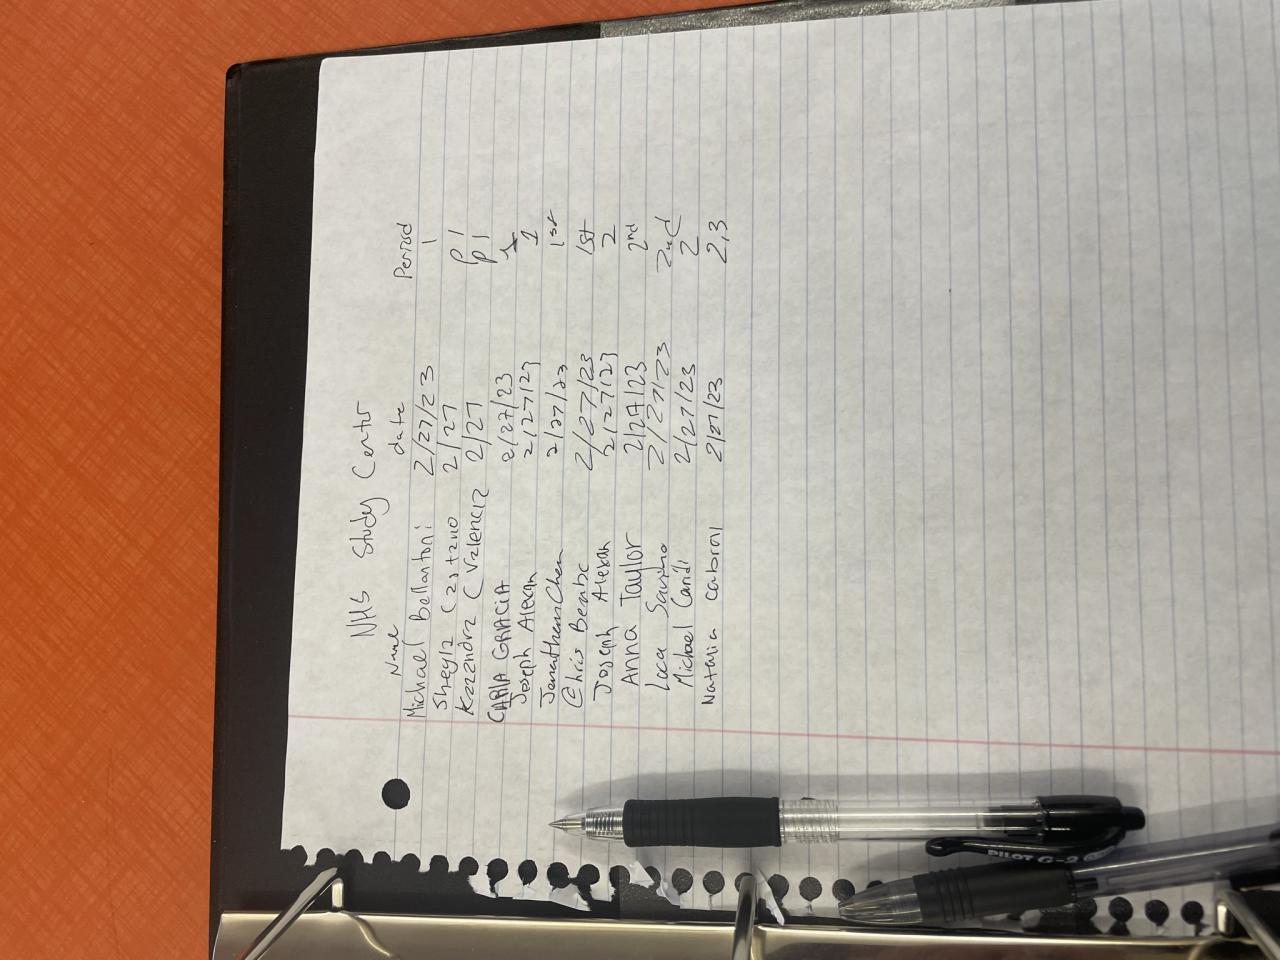 NHS Study Center
Name date Period
Michael Bellantoni 2/27/23 1
Sheyla Castano 2/27 P1
Kazandra Valencia 2/27 P1
CARIA GRACIA 2/27/23 1
Joseph Alexan 2/27/23 1
Jonathan Chen 2/27/23 1st
Chris Bembe 2/27/23 1st
Joseph Alexan 2/27/23 2
Anna Taylor 2/27/23 2nd
Luca 2/27/23 2nd
Michael 2/27/23 2
Natalia cabral 2/27/23 2,3
PILOT G-2